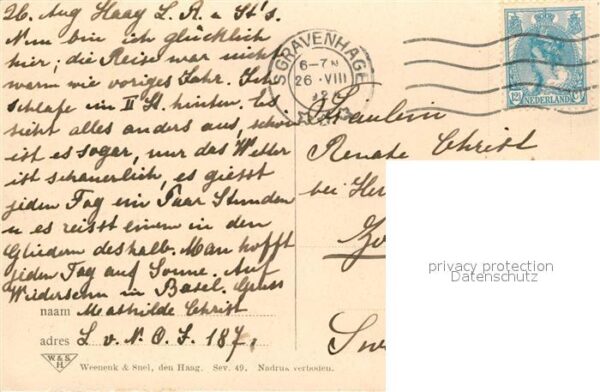 26. Aug Haag L. R. u St's.
Nun bin ich glücklich
hier; die Reise war nicht
warm wie voriges Jahr. Ich
schlafe im II St. hinten. Es
sieht alles anders aus, schön
ist es sogar, nur das Wetter
ist schauerlich, es giesst
jeden Tag ein Paar Stunden
u es reisst einem in den
Gliedern deshalb. Man hofft
jeden Tag auf Sonne. Auf
Wiedersehn in Basel. Gruss
naam Mathilde Christ
adres L. v. N. O. I. 187,
W.&S. H.
Weenenk & Snel, den Haag. Sev. 49. Nadruk verboden.
'SGRAVENHAGE
6-7 N
26 · VIII
NEDERLAND
12½
Fräulein
Renate Christ
bei
privacy protection
Datenschutz